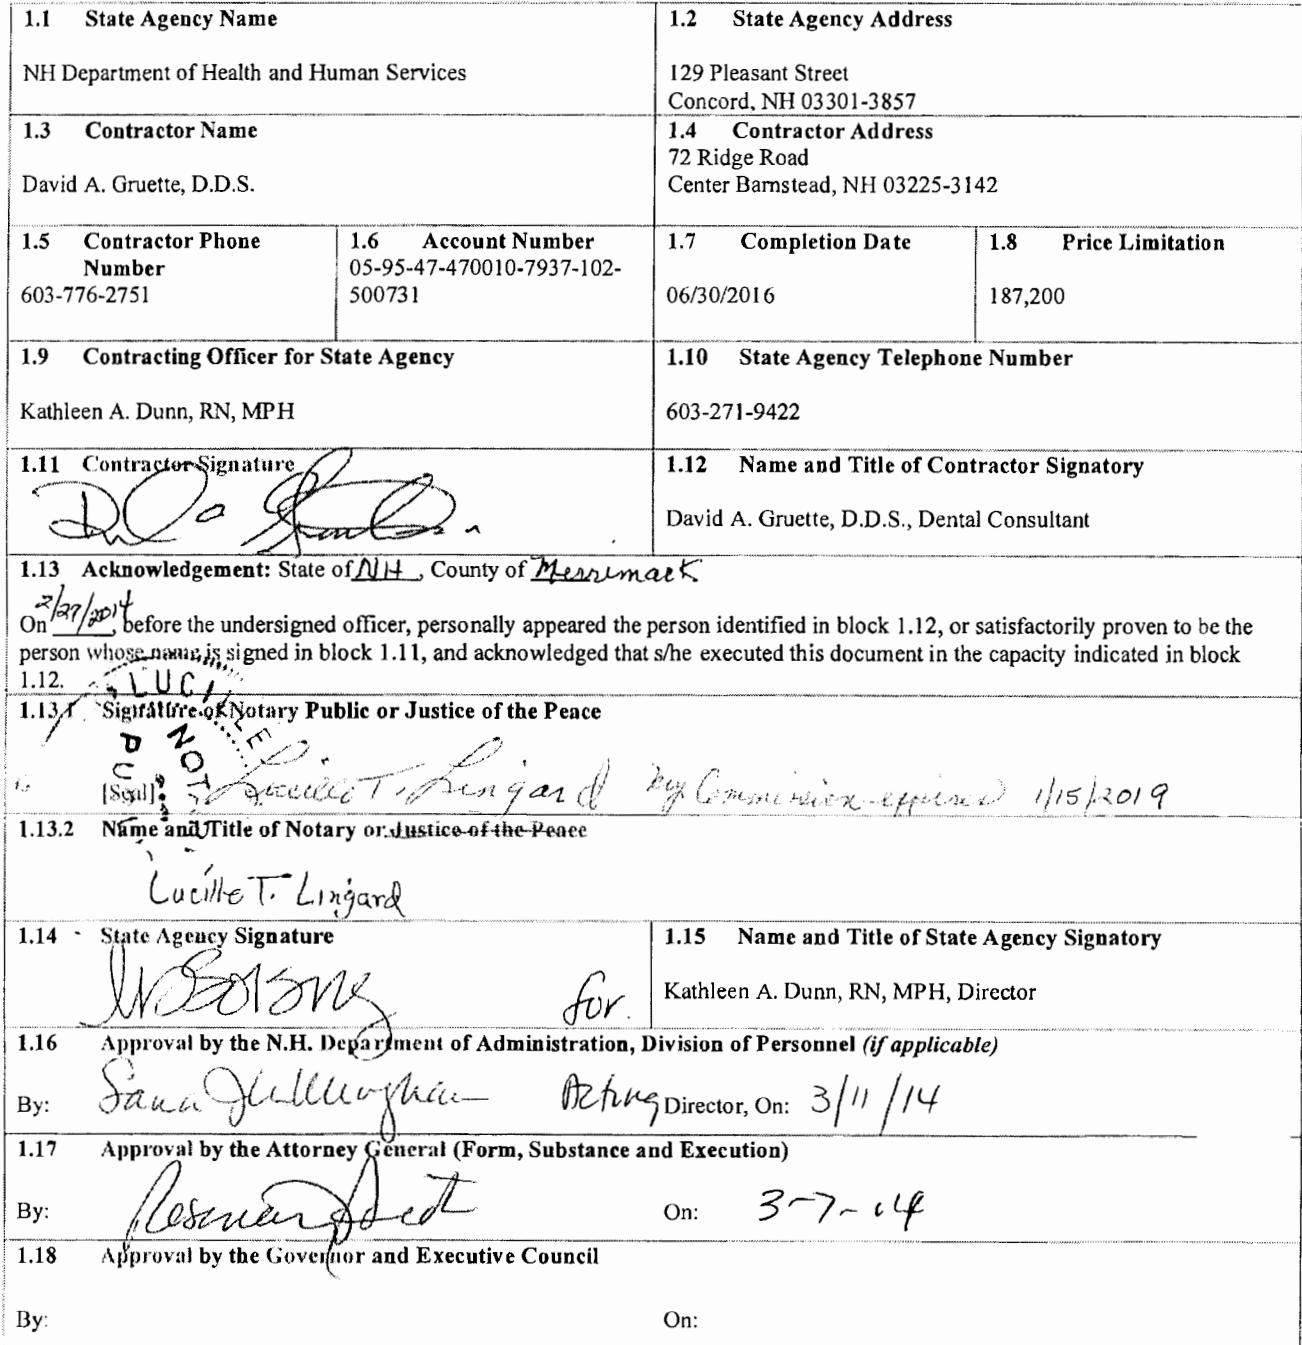 1.1 State Agency Name
NH Department of Health and Human Services
1.2 State Agency Address
129 Pleasant Street
Concord, NH 03301-3857
1.3 Contractor Name
David A. Gruette, D.D.S.
1.4 Contractor Address
72 Ridge Road
Center Barnstead, NH 03225-3142
1.5 Contractor Phone
Number
603-776-2751
1.6 Account Number
05-95-47-470010-7937-102-
500731
1.7 Completion Date
06/30/2016
1.8 Price Limitation
187,200
1.9 Contracting Officer for State Agency
Kathleen A. Dunn, RN, MPH
1.10 State Agency Telephone Number
603-271-9422
1.11 Contractor Signature
1.12 Name and Title of Contractor Signatory
David A. Gruette, D.D.S., Dental Consultant
1.13 Acknowledgement: State of NH, County of Merrimack
On 2/27/2014, before the undersigned officer, personally appeared the person identified in block 1.12, or satisfactorily proven to be the
person whose name is signed in block 1.11, and acknowledged that s/he executed this document in the capacity indicated in block
1.12.
LUCILLE
1.13.1 Signature of Notary Public or Justice of the Peace
NOT
PU
[Seal] Lucille T. Lingard My Commission expires 1/15/2019
1.13.2 Name and Title of Notary or Justice of the Peace
Lucille T. Lingard
1.14 State Agency Signature
for
1.15 Name and Title of State Agency Signatory
Kathleen A. Dunn, RN, MPH, Director
1.16 Approval by the N.H. Department of Administration, Division of Personnel (if applicable)
By: Acting Director, On: 3/11/14
1.17 Approval by the Attorney General (Form, Substance and Execution)
By: On: 3-7-14
1.18 Approval by the Governor and Executive Council
By: On: